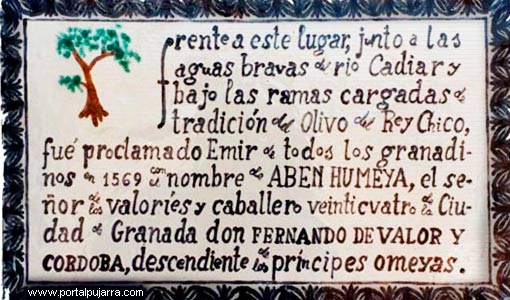 frente a este lugar, junto a las
aguas bravas del rio Cadiar y
bajo las ramas cargadas de
tradición del Olivo del Rey Chico,
fué proclamado Emir de todos los granadi-
nos en 1569 con nombre de ABEN HUMEYA, el se-
ñor de los valoríes y caballero veinticuatro de la Ciu-
dad de Granada don FERNANDO DE VALOR Y
CORDOBA, descendiente de los príncipes omeyas.
www.portalpujarra.com